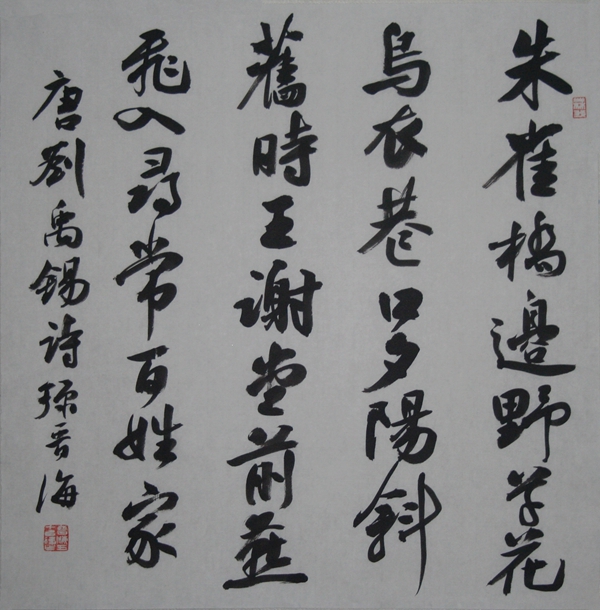 朱雀橋邊野草花
烏衣巷口夕陽斜
舊時王謝堂前燕
飛入尋常百姓家
唐劉禹錫詩 晋海